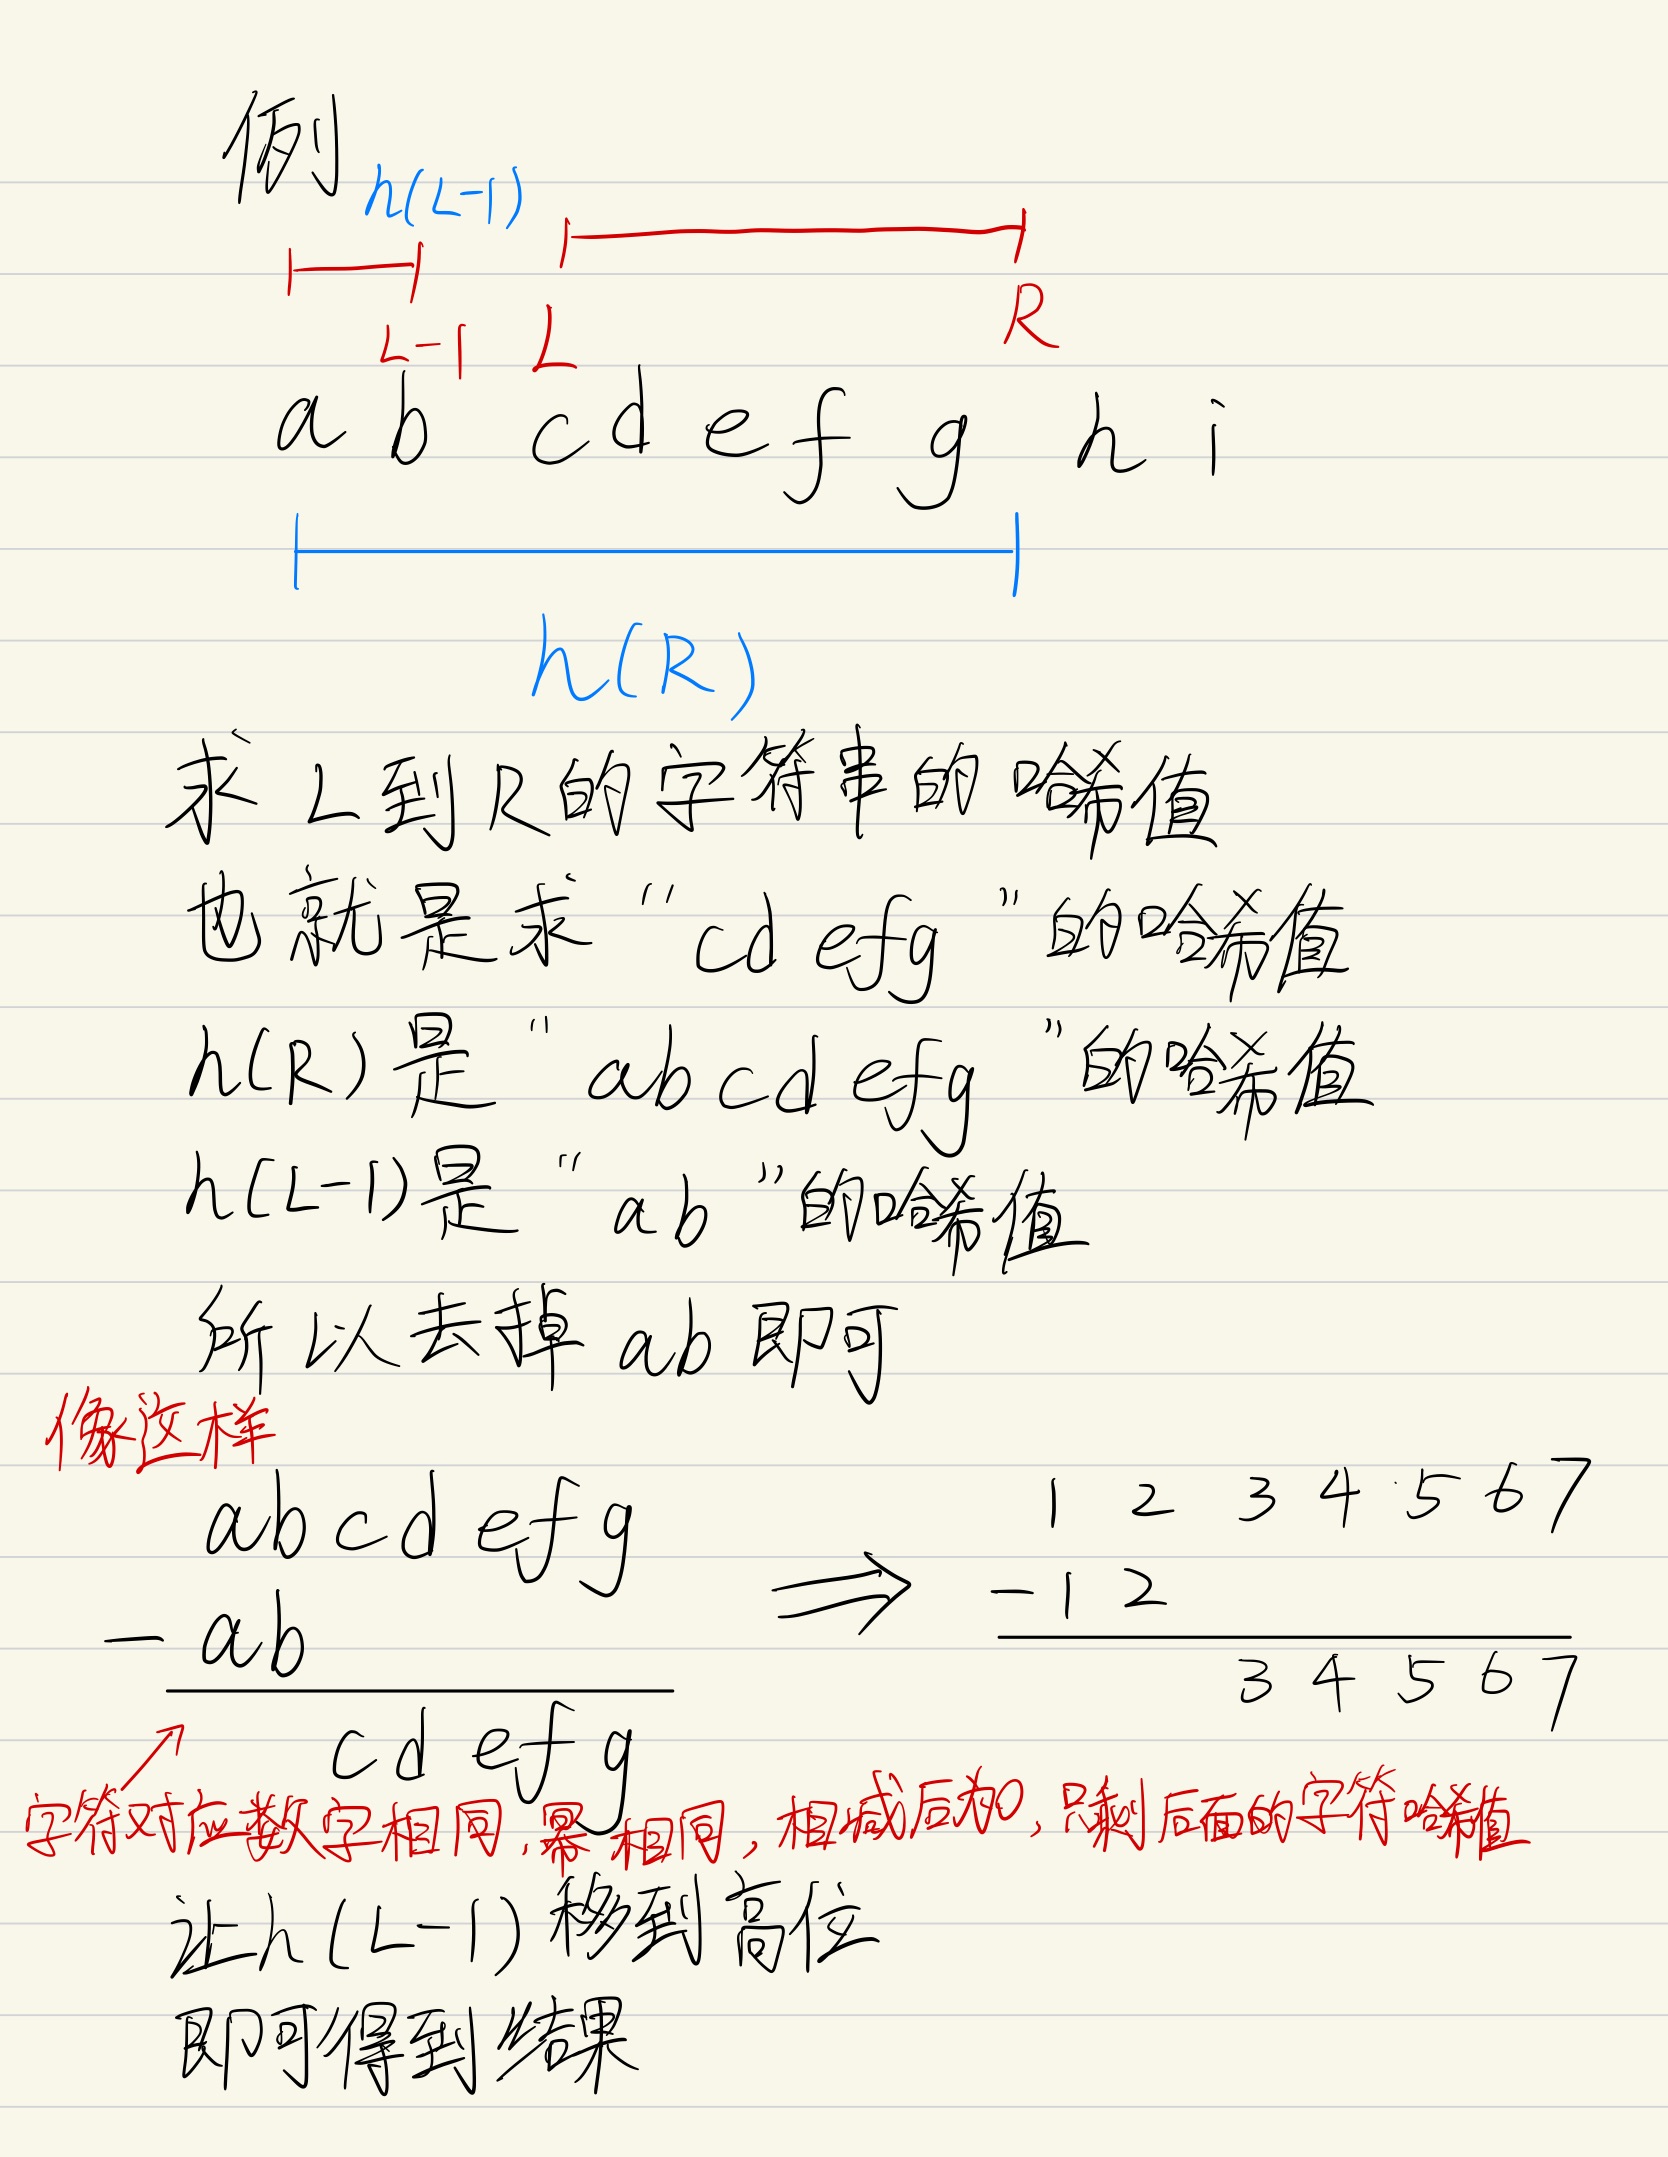 例
h(L-1)
L-1 L R
a b c d e f g h i
h(R)
求L到R的字符串的哈希值
也就是求“cdefg”的哈希值
h(R)是“abcdefg”的哈希值
h(L-1)是“ab”的哈希值
所以去掉ab即可
像这样
abcdefg ⇒ 1 2 3 4 5 6 7
-ab -1 2
cdefg 3 4 5 6 7
字符对应数字相同,幂相同,相减后为0,只剩后面的字符哈希值
让h(L-1)移到高位
即可得到结果